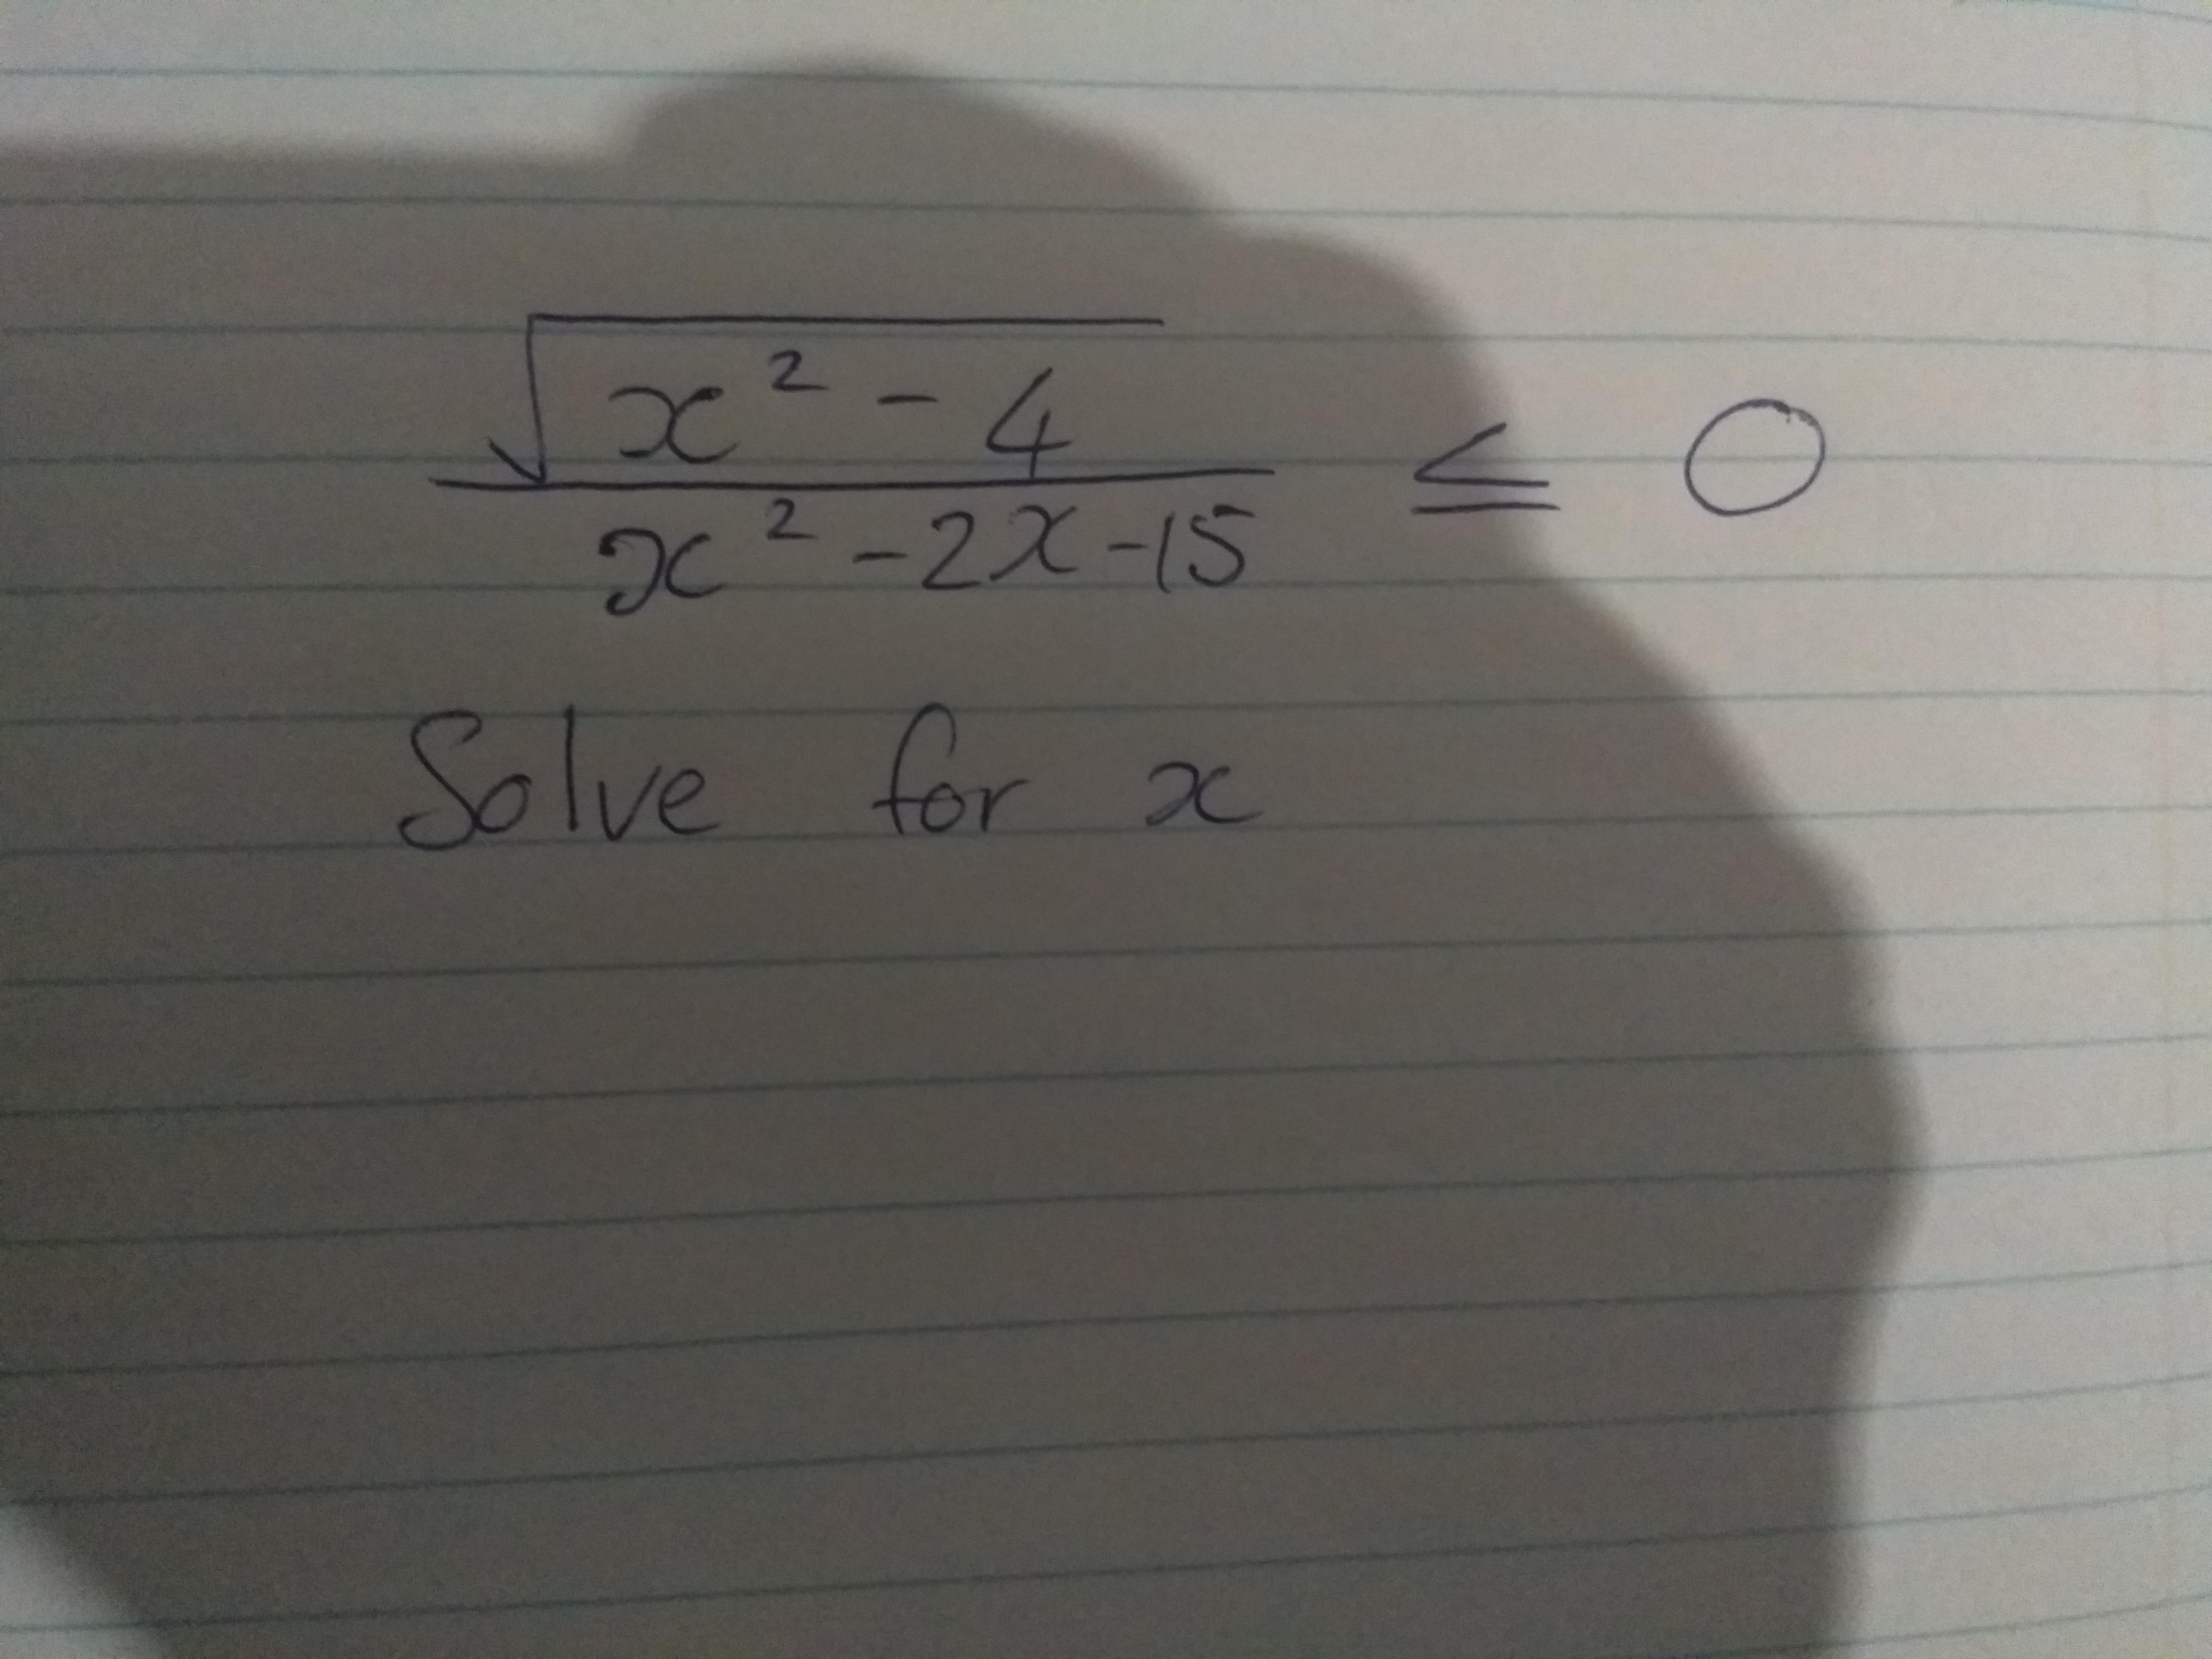 √(x² - 4) / (x² - 2x - 15) ≤ 0
Solve for x